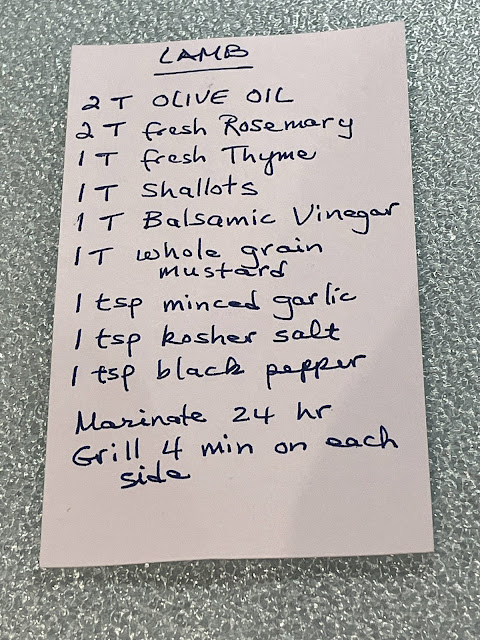 LAMB
2 T OLIVE OIL
2 T fresh Rosemary
1 T fresh Thyme
1 T Shallots
1 T Balsamic Vinegar
1 T whole grain
mustard
1 tsp minced garlic
1 tsp kosher salt
1 tsp black pepper
Marinate 24 hr
Grill 4 min on each
side